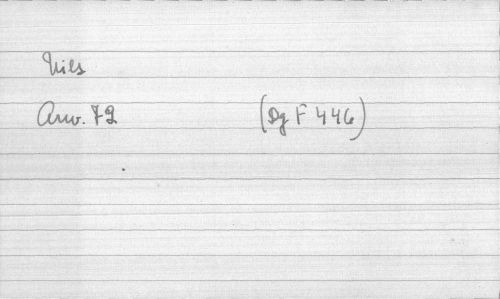 Nils
Arw. 72 (Dg F 446)